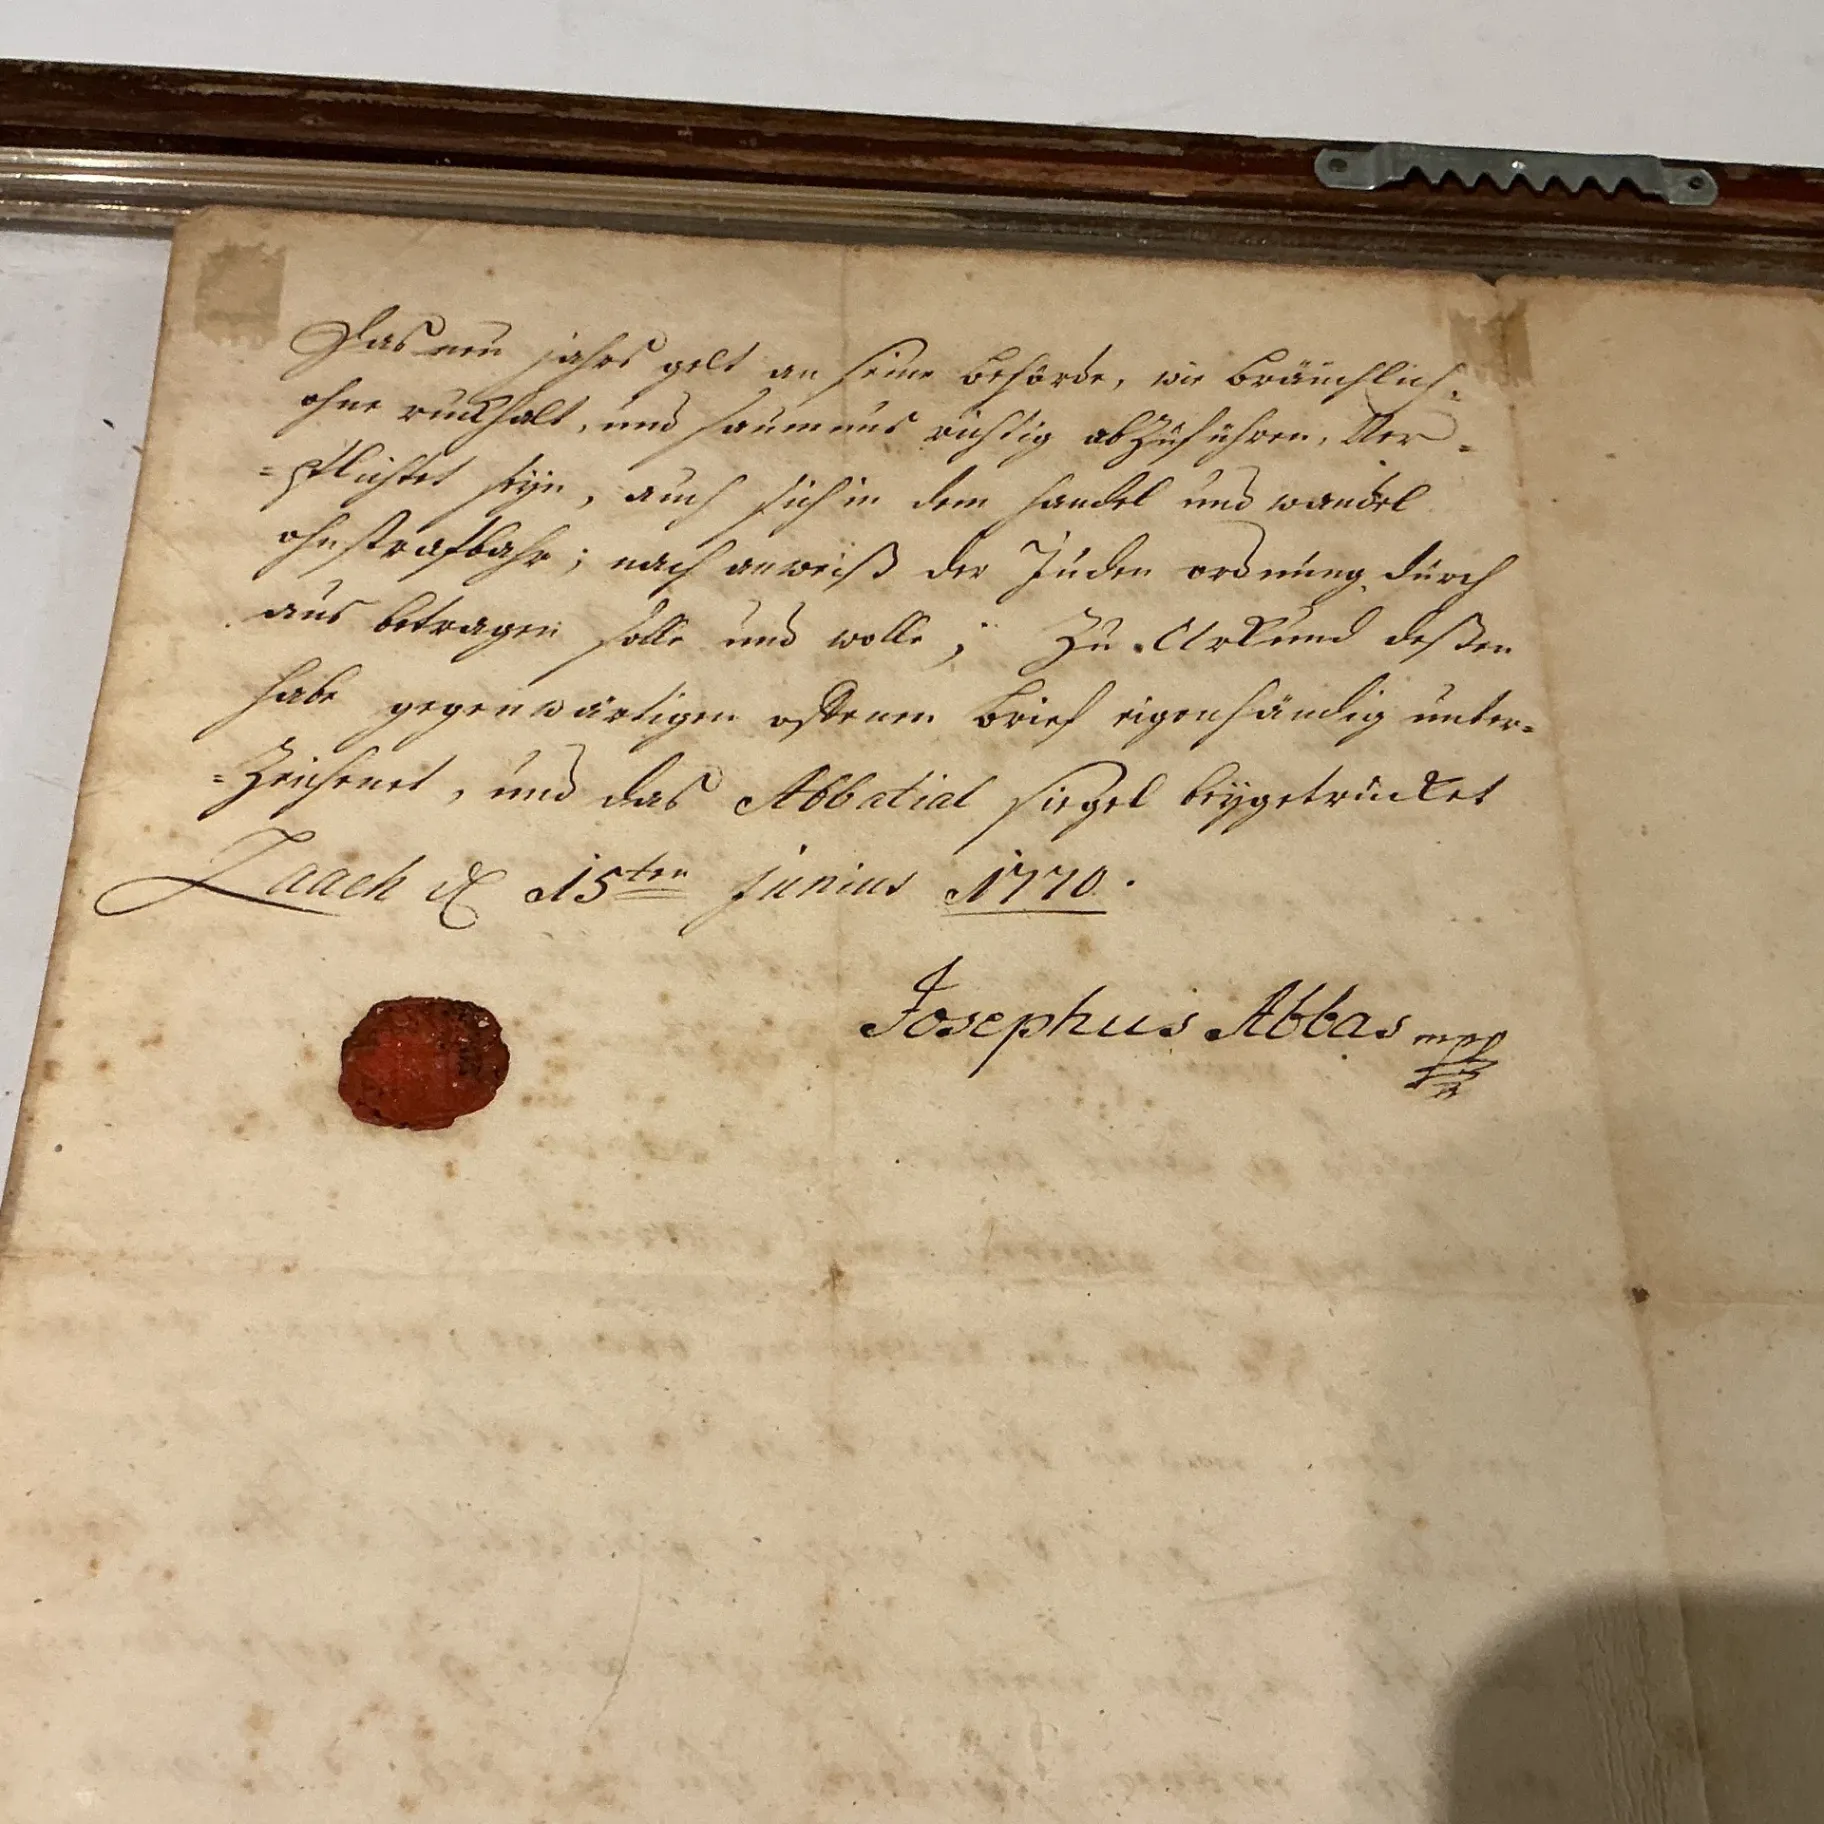 Das neu jahrs gelt an seine behörde, wie bräuchlich,
ohne ruckhalt, und saumnus richtig abzuführen, Ver=
=pflichtet seÿn, auch sich in dem handel und wandel
ohnstrafbahr; nach anweiß der Juden ordnung durch
aus betragen solle und wolle; Zu Urkund deßen
habe gegenwärtigen offenen brief eigenhändig unter=
=Zeichnet, und das Abbatial siegel beÿgetrücket
Laach d 15ten Junius 1770.
Josephus Abbas mpp